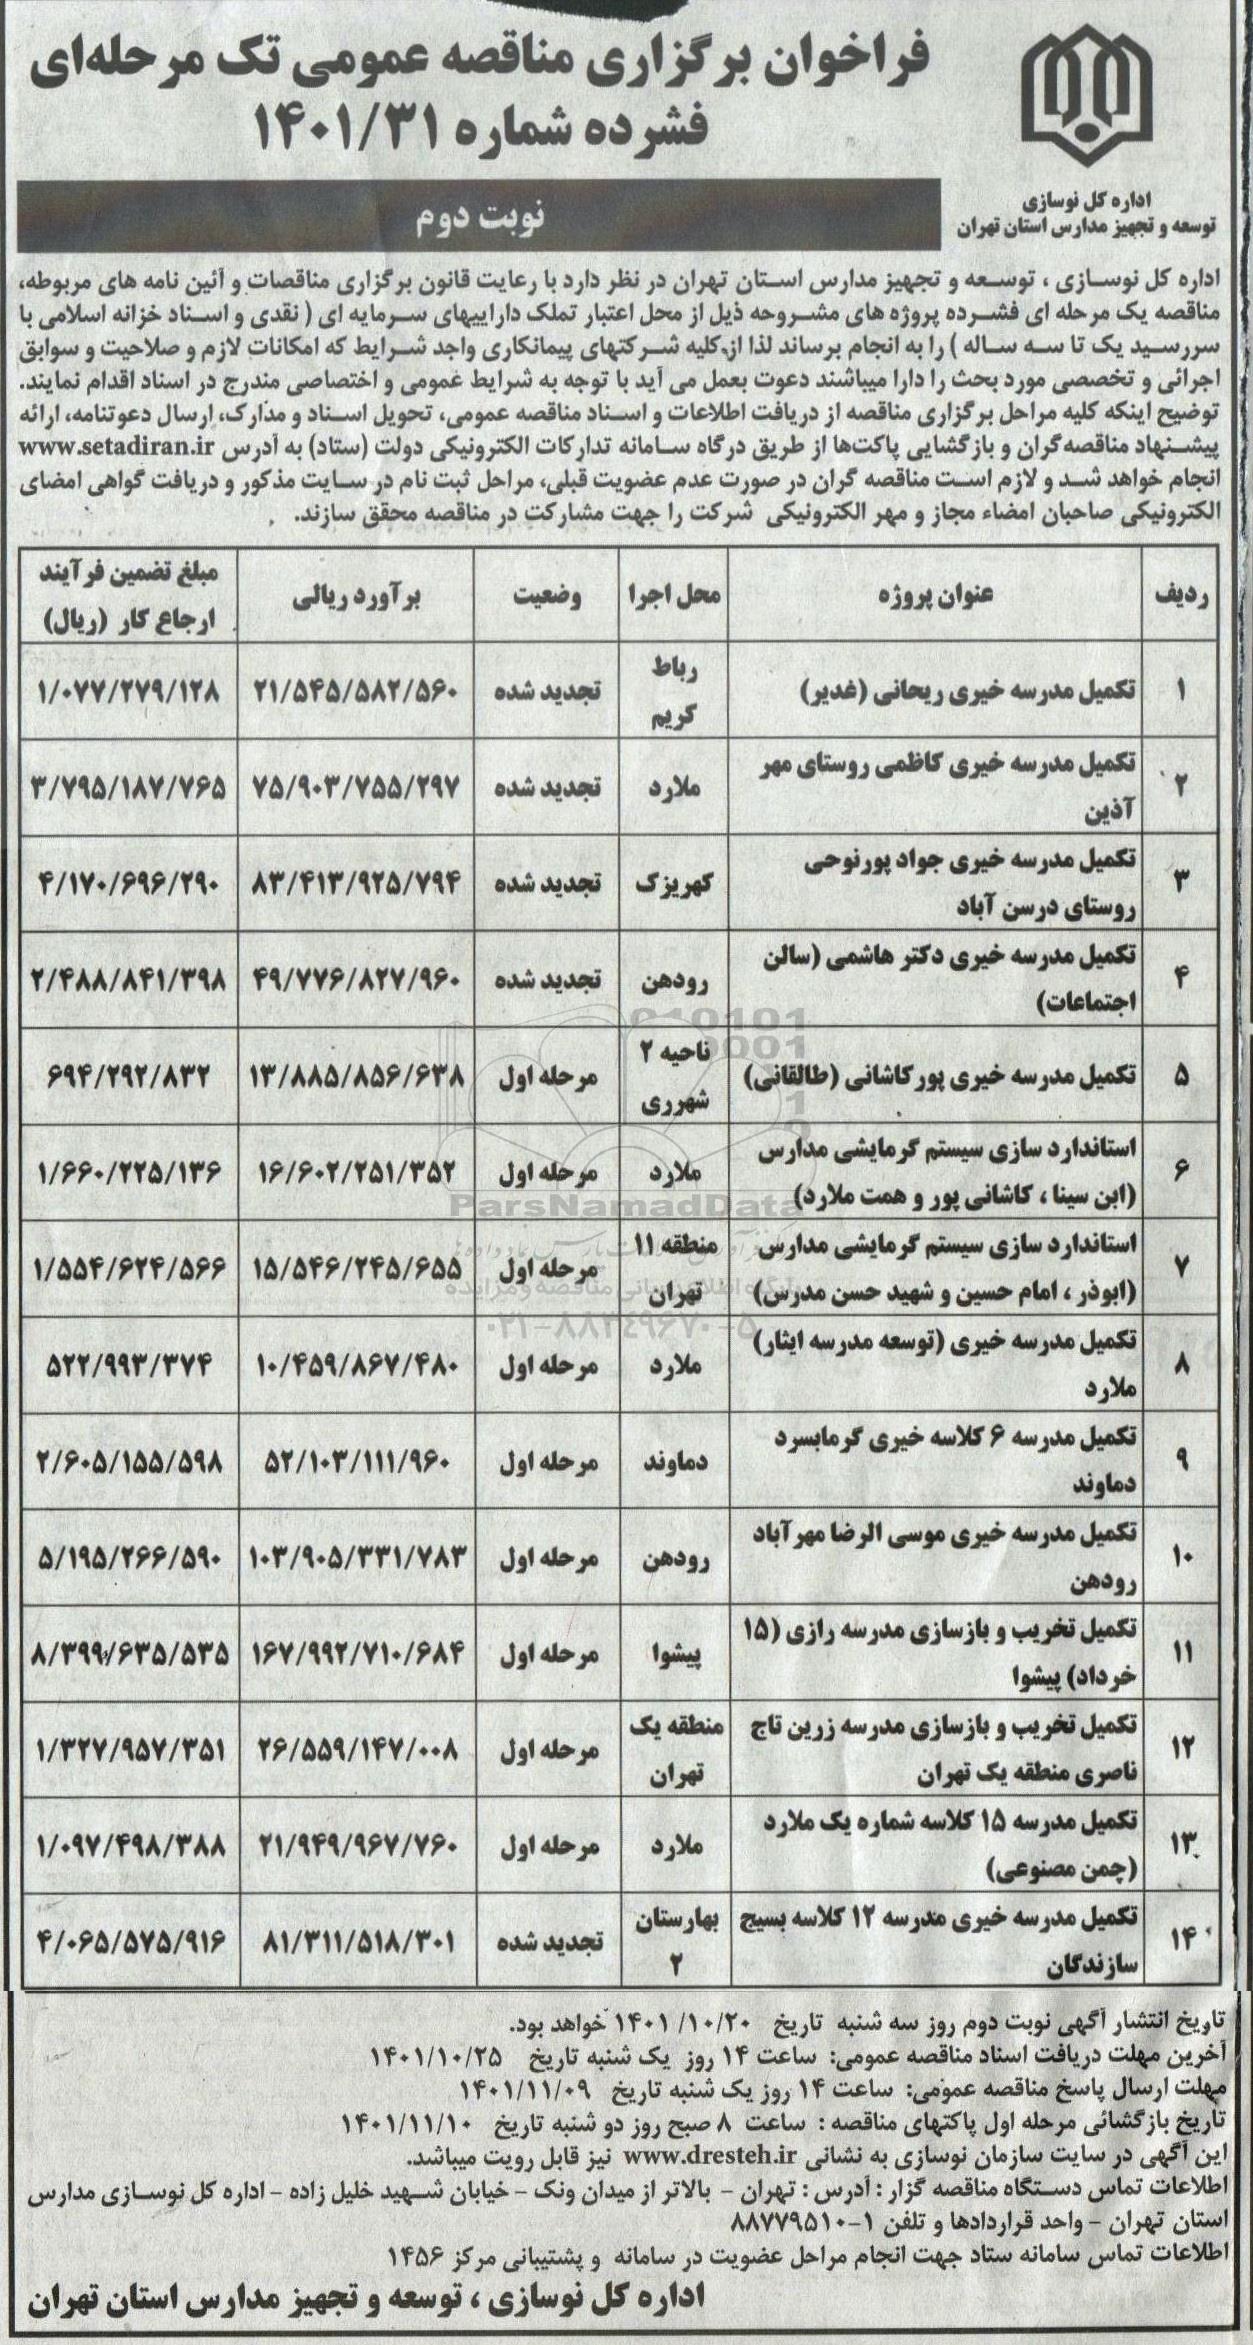 فراخوان برگزاری مناقصه عمومی تک مرحله‌ای
فشرده شماره ۱۴۰۱/۳۱
اداره کل نوسازی
توسعه و تجهیز مدارس استان تهران
نوبت دوم
اداره کل نوسازی ، توسعه و تجهیز مدارس استان تهران در نظر دارد با رعایت قانون برگزاری مناقصات و آئین نامه های مربوطه،
مناقصه یک مرحله ای فشرده پروژه های مشروحه ذیل از محل اعتبار تملک داراییهای سرمایه ای ( نقدی و اسناد خزانه اسلامی با
سررسید یک تا سه ساله ) را به انجام برساند لذا از کلیه شرکتهای پیمانکاری واجد شرایط که امکانات لازم و صلاحیت و سوابق
اجرائی و تخصصی مورد بحث را دارا میباشند دعوت بعمل می آید با توجه به شرایط عمومی و اختصاصی مندرج در اسناد اقدام نمایند.
توضیح اینکه کلیه مراحل برگزاری مناقصه از دریافت اطلاعات و اسناد مناقصه عمومی، تحویل اسناد و مدارک، ارسال دعوتنامه، ارائه
پیشنهاد مناقصه‌گران و بازگشایی پاکت‌ها از طریق درگاه سامانه تدارکات الکترونیکی دولت (ستاد) به آدرس www.setadiran.ir
انجام خواهد شد و لازم است مناقصه گران در صورت عدم عضویت قبلی، مراحل ثبت نام در سایت مذکور و دریافت گواهی امضای
الکترونیکی صاحبان امضاء مجاز و مهر الکترونیکی شرکت را جهت مشارکت در مناقصه محقق سازند.
ردیف عنوان پروژه محل اجرا وضعیت برآورد ریالی مبلغ تضمین فرآیند
ارجاع کار (ریال)
۱ تکمیل مدرسه خیری ریحانی (غدیر) رباط کریم تجدید شده ۲۱/۵۴۵/۵۸۲/۵۶۰ ۱/۰۷۷/۲۷۹/۱۲۸
۲ تکمیل مدرسه خیری کاظمی روستای مهر
آذین ملارد تجدید شده ۷۵/۹۰۳/۷۵۵/۲۹۷ ۳/۷۹۵/۱۸۷/۷۶۵
۳ تکمیل مدرسه خیری جواد پورنوحی
روستای درسن آباد کهریزک تجدید شده ۸۳/۴۱۳/۹۲۵/۷۹۴ ۴/۱۷۰/۶۹۶/۲۹۰
۴ تکمیل مدرسه خیری دکتر هاشمی (سالن
اجتماعات) رودهن تجدید شده ۴۹/۷۷۶/۸۲۷/۹۶۰ ۲/۴۸۸/۸۴۱/۳۹۸
۵ تکمیل مدرسه خیری پورکاشانی (طالقانی) ناحیه ۲ شهرری مرحله اول ۱۳/۸۸۵/۸۵۶/۶۳۸ ۶۹۴/۲۹۲/۸۳۲
۶ استاندارد سازی سیستم گرمایشی مدارس
(ابن سینا ، کاشانی پور و همت ملارد) ملارد مرحله اول ۱۶/۶۰۲/۲۵۱/۳۵۲ ۱/۶۶۰/۲۲۵/۱۳۶
۷ استاندارد سازی سیستم گرمایشی مدارس
(ابوذر ، امام حسین و شهید حسن مدرس) منطقه ۱۱ تهران مرحله اول ۱۵/۵۴۶/۲۴۵/۶۵۵ ۱/۵۵۴/۶۲۴/۵۶۶
۸ تکمیل مدرسه خیری (توسعه مدرسه ایثار)
ملارد ملارد مرحله اول ۱۰/۴۵۹/۸۶۷/۴۸۰ ۵۲۲/۹۹۳/۳۷۴
۹ تکمیل مدرسه ۶ کلاسه خیری گرمابسرد
دماوند دماوند مرحله اول ۵۲/۱۰۳/۱۱۱/۹۶۰ ۲/۶۰۵/۱۵۵/۵۹۸
۱۰ تکمیل مدرسه خیری موسی الرضا مهرآباد
رودهن رودهن مرحله اول ۱۰۳/۹۰۵/۳۳۱/۷۸۳ ۵/۱۹۵/۲۶۶/۵۹۰
۱۱ تکمیل تخریب و بازسازی مدرسه رازی (۱۵
خرداد) پیشوا پیشوا مرحله اول ۱۶۷/۹۹۲/۷۱۰/۶۸۴ ۸/۳۹۹/۶۳۵/۵۳۵
۱۲ تکمیل تخریب و بازسازی مدرسه زرین تاج
ناصری منطقه یک تهران منطقه یک تهران مرحله اول ۲۶/۵۵۹/۱۴۷/۰۰۸ ۱/۳۲۷/۹۵۷/۳۵۱
۱۳ تکمیل مدرسه ۱۵ کلاسه شماره یک ملارد
(چمن مصنوعی) ملارد مرحله اول ۲۱/۹۴۹/۹۶۷/۷۶۰ ۱/۰۹۷/۴۹۸/۳۸۸
۱۴ تکمیل مدرسه خیری مدرسه ۱۲ کلاسه بسیج
سازندگان بهارستان ۲ تجدید شده ۸۱/۳۱۱/۵۱۸/۳۰۱ ۴/۰۶۵/۵۷۵/۹۱۶
ParsNamadData
پایگاه اطلاع رسانی مناقصه و مزایده
۰۲۱-۸۸۳۴۹۶۷۰-۵
تاریخ انتشار آگهی نوبت دوم روز سه شنبه تاریخ ۱۴۰۱/۱۰/۲۰ خواهد بود.
آخرین مهلت دریافت اسناد مناقصه عمومی: ساعت ۱۴ روز یک شنبه تاریخ ۱۴۰۱/۱۰/۲۵
مهلت ارسال پاسخ مناقصه عمومی: ساعت ۱۴ روز یک شنبه تاریخ ۱۴۰۱/۱۱/۰۹
تاریخ بازگشائی مرحله اول پاکتهای مناقصه : ساعت ۸ صبح روز دو شنبه تاریخ ۱۴۰۱/۱۱/۱۰
این آگهی در سایت سازمان نوسازی به نشانی www.dresteh.ir نیز قابل رویت میباشد.
اطلاعات تماس دستگاه مناقصه گزار : آدرس : تهران - بالاتر از میدان ونک - خیابان شهید خلیل زاده - اداره کل نوسازی مدارس
استان تهران - واحد قراردادها و تلفن ۱-۸۸۷۷۹۵۱۰
اطلاعات تماس سامانه ستاد جهت انجام مراحل عضویت در سامانه و پشتیبانی مرکز ۱۴۵۶
اداره کل نوسازی ، توسعه و تجهیز مدارس استان تهران